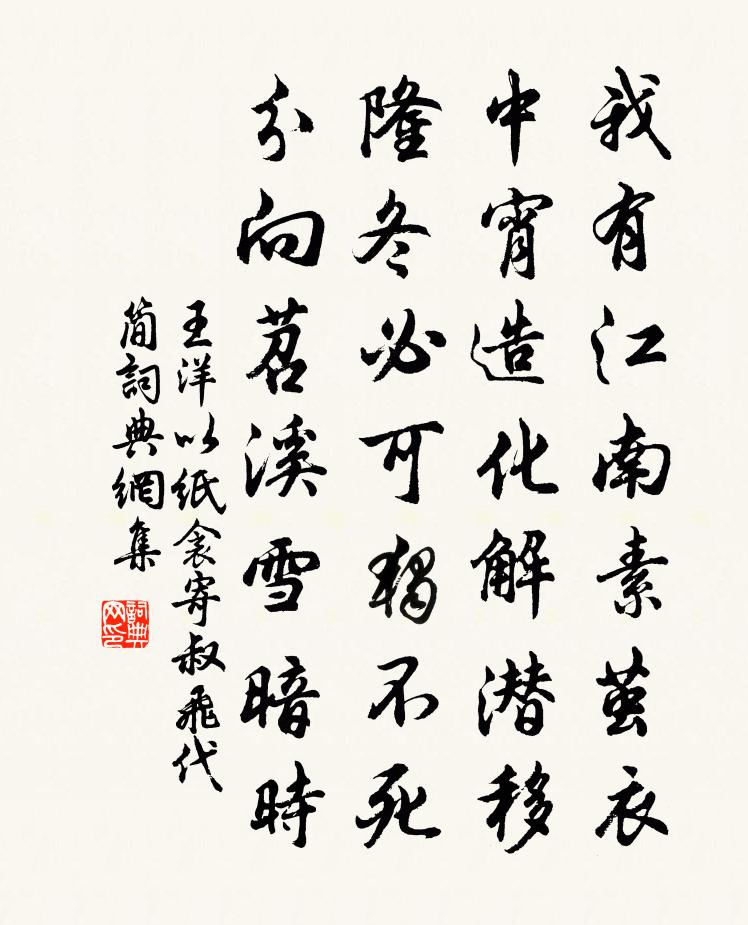 我有江南素茧衣
中宵造化解潜移
隆冬必可獨不死
分向苕溪雪暗時
王洋以紙衾寄叔飛代
簡詞典網集
詞典网印